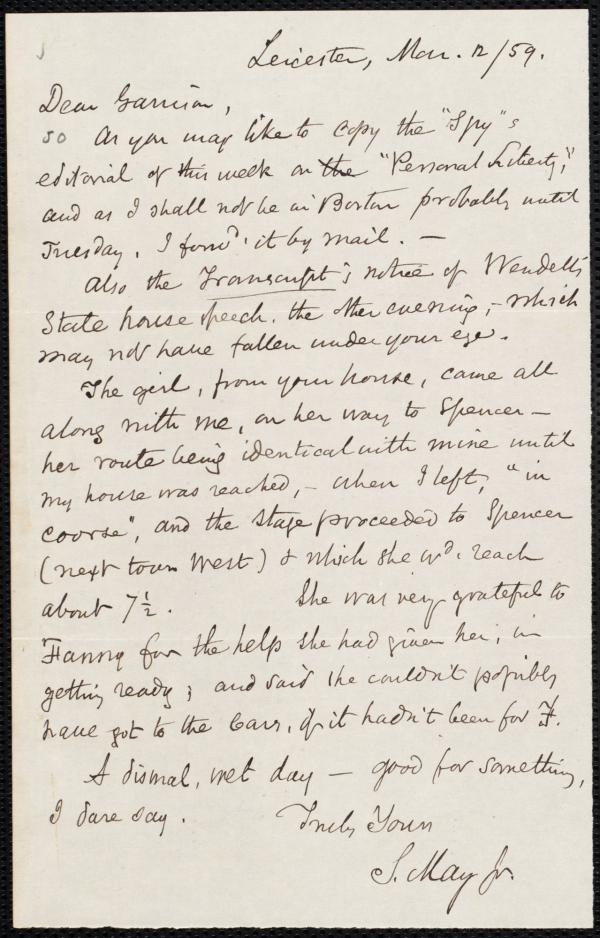 Leicester, Mar. 12/59.
Dear Garrison,
so As you may like to copy the "Spy"s
editorial of this week on the "Personal Liberty,"
and as I shall not be in Boston probably until
Tuesday, I forwd. it by mail. —
Also the Transcript's notice of Wendell's
State house speech, the other evening, - which
may not have fallen under your eye.
The girl, from your house, came all
along with me, on her way to Spencer —
her route being identical with mine until
my house was reached, - when I left, "in
coorse", and the stage proceeded to Spencer
(next town West) & which she wd. reach
about 7½. She was very grateful to
Fanny for the help she had given her, in
getting ready; and said she couldn't possibly
have got to the Cars, if it hadn't been for F.
A dismal, wet day — good for something,
I dare say.
Truly Yours
S. May Jr.